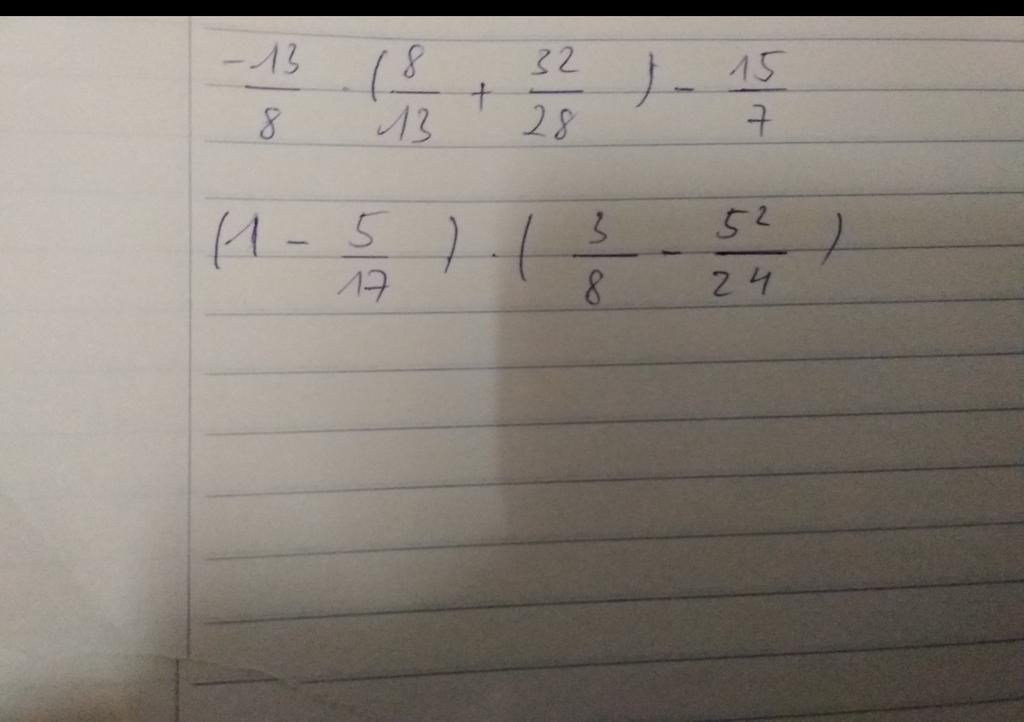 -13/8 · (8/13 + 32/28) - 15/7
(1 - 5/17) · (3/8 - 5²/24)